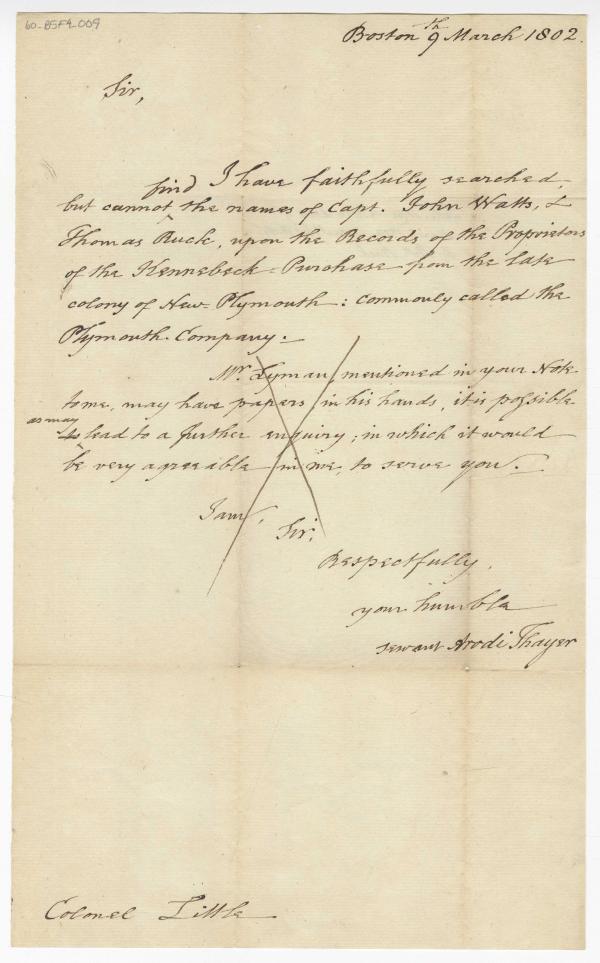 60-BSF4-009
Boston 9th March 1802.
Sir,
I have faithfully searched,
but cannot find the names of Capt. John Watts, &
Thomas Ruck, upon the Records of the Proprietors
of the Kennebeck-Purchase from the late
colony of New-Plymouth: commonly called the
Plymouth-Company.-
Mr. Lyman, mentioned in your Note
to me, may have papers in his hands, it is possible
as may
to lead to a further enquiry; in which it would
be very agreeable in me, to serve you.
I am,
Sir,
Respectfully,
your humble
servant Arodi Thayer
Colonel Little